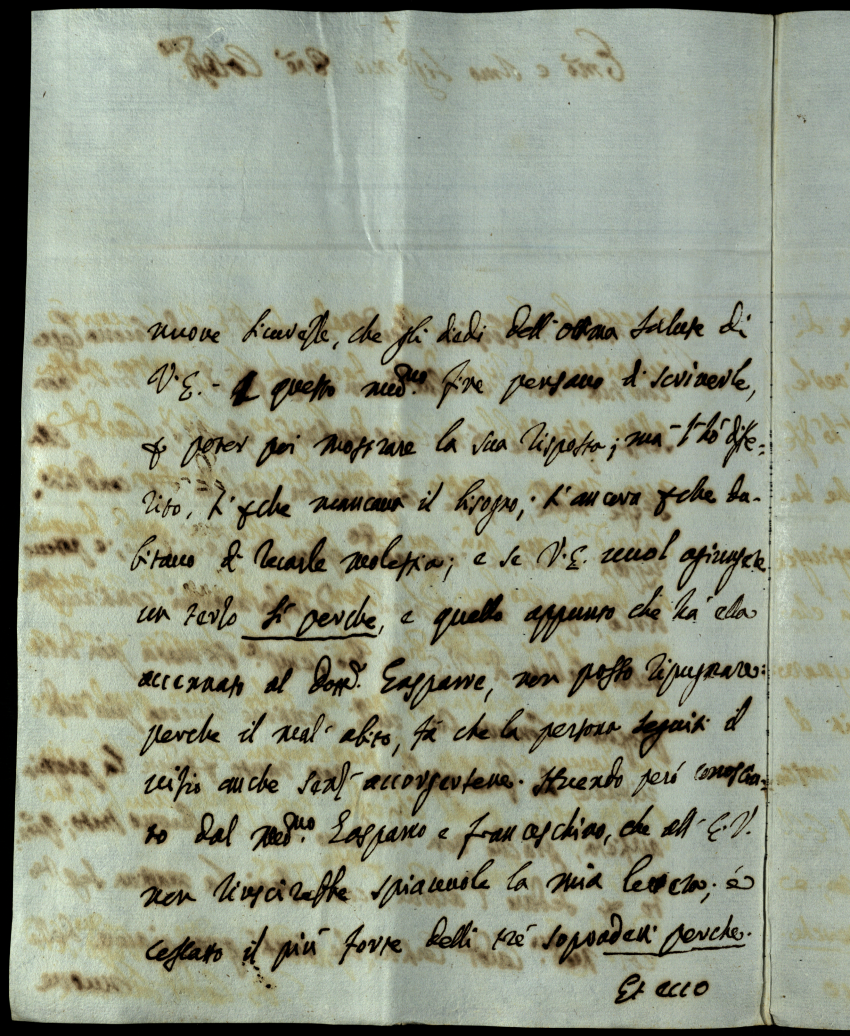 nuove sicurezze, che gli diedi dell'ottima salute di
V. E. - A questo med.mo fine pensavo di scriverle,
p poter poi mostrare la sua risposta; ma l'hò diffe=
rito, sì pche mancava il bisogno; sì ancora pche du-
bitavo di recarle molestia; e se V. E. vuol agiungere
un terzo sì perche, e quello appunto che hà ella
accennato al Dott.r Gaspare, non posso ripugnare:
perche il mal-abito, fà che la persona seguiti il
vizio anche senz-accorgersene. Avendo però conosciu-
to dal med.mo Gasparo e Franceschino, che all' E. V.
non riuscirebbe spiacevole la mia lettera; è
cessato il più forte delli trè sopradetti perche.
Et ecco